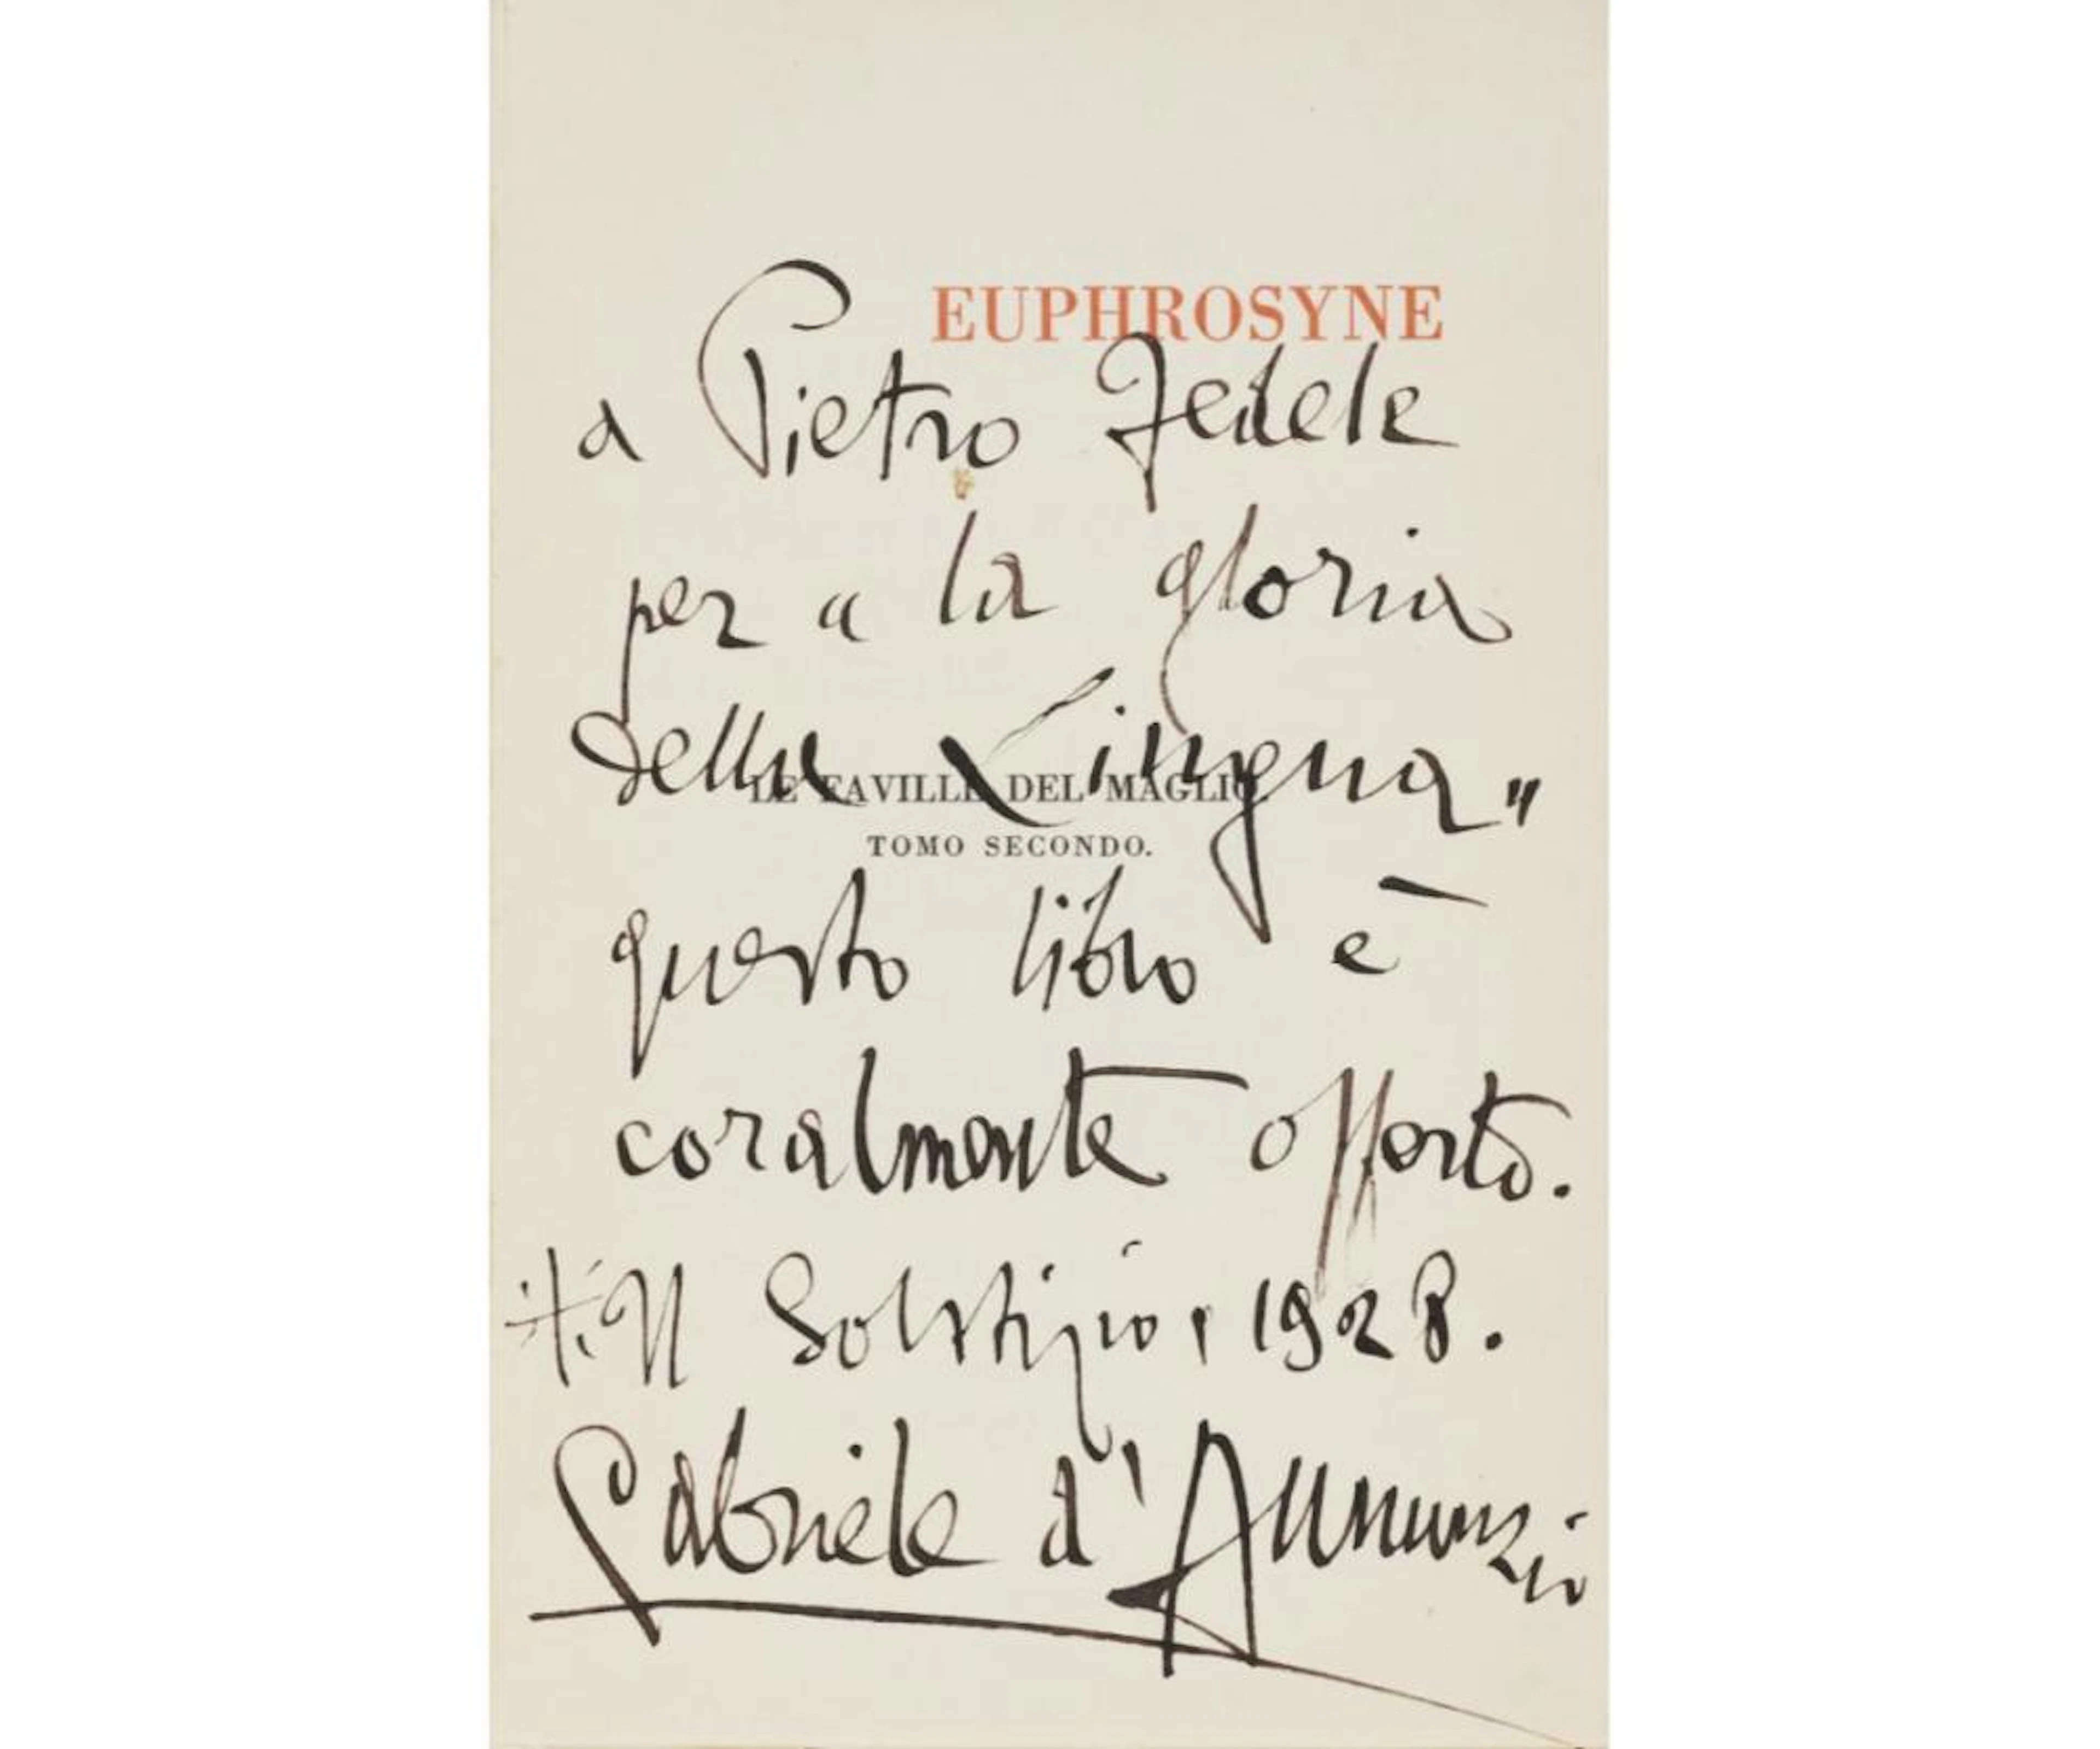 EUPHROSYNE
a Pietro Fedele
per « la gloria
della Lingua "
LE FAVILLE DEL MAGLIO.
TOMO SECONDO.
questo libro è
coralmente offerto.
Il Solstizio, 1928.
Gabriele d'Annunzio